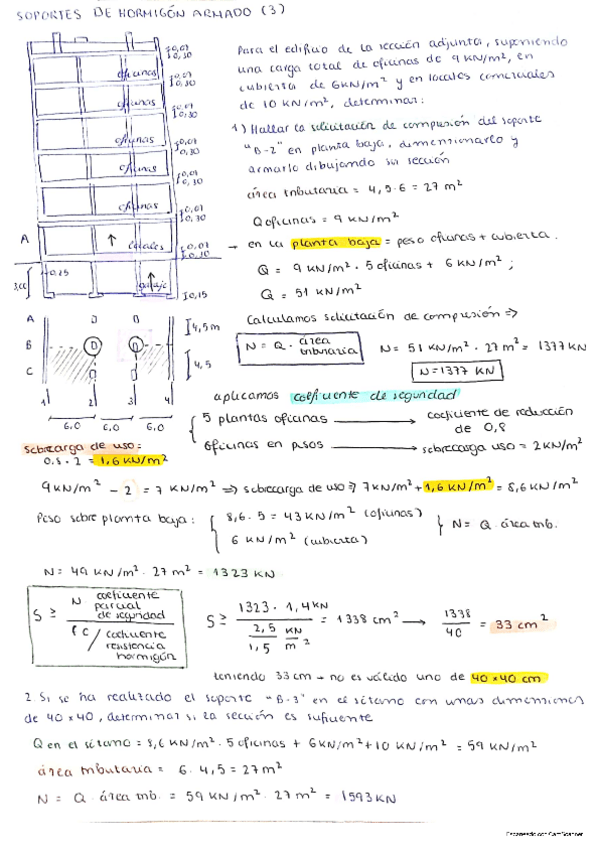 SOPORTES DE HORMIGÓN ARMADO (3)
Para el edificio de la sección adjunta, suponiendo
una carga total de oficinas de 9 KN/m², en
cubierta de 6KN/m² y en locales comerciales
de 10 KN/m², determinar:
1) Hallar la solicitación de compresión del soporte
"B-2" en planta baja, dimensionarlo y
armarlo dibujando su sección
área tributaria = 4,5·6 = 27 m²
Q oficinas = 9 KN/m²
→ en la planta baja = peso oficinas + cubierta.
Q = 9 KN/m² · 5 oficinas + 6 KN/m² ;
Q = 51 KN/m²
Calculamos solicitación de compresión ⇒
N = Q · área tributaria
N = 51 KN/m² · 27 m² = 1377 KN
N = 1377 KN
oficinas
oficinas
oficinas
oficinas
oficinas
locales
garaje
0,30
0,30
0,30
0,30
0,30
0,25
0,15
A
A
B
C
4,5m
4,5
1
2
3
4
6,0
6,0
6,0
aplicamos coeficiente de seguridad
5 plantas oficinas → coeficiente de reducción
de 0,8
oficinas en pisos → sobrecarga uso = 2KN/m²
sobrecarga de uso:
0,8 · 2 = 1,6 KN/m²
9KN/m² - 2 = 7 KN/m² ⇒ sobrecarga de uso ⇒ 7KN/m² + 1,6 KN/m² = 8,6 KN/m²
Peso sobre planta baja: { 8,6 · 5 = 43 KN/m² (oficinas)
6 KN/m² (cubierta) } N = Q · área trib.
N = 49 KN/m² · 27 m² = 1323 KN
S ≥ N coeficiente parcial de seguridad
fc / coeficiente resistencia hormigón
S ≥ 1323 · 1,4 KN
2,5 / 1,5 KN/m² = 1338 cm² → 1338 / 40 = 33 cm²
teniendo 33 cm → no es válido uno de 40×40 cm
2. Si se ha realizado el soporte "B-3" en el sótano con unas dimensiones
de 40×40, determinar si la sección es suficiente
Q en el sótano = 8,6 KN/m² · 5 oficinas + 6KN/m² + 10 KN/m² = 59 KN/m²
área tributaria = 6 · 4,5 = 27 m²
N = Q · área trib. = 59 KN/m² · 27 m² = 1593 KN
Escaneado con CamScanner